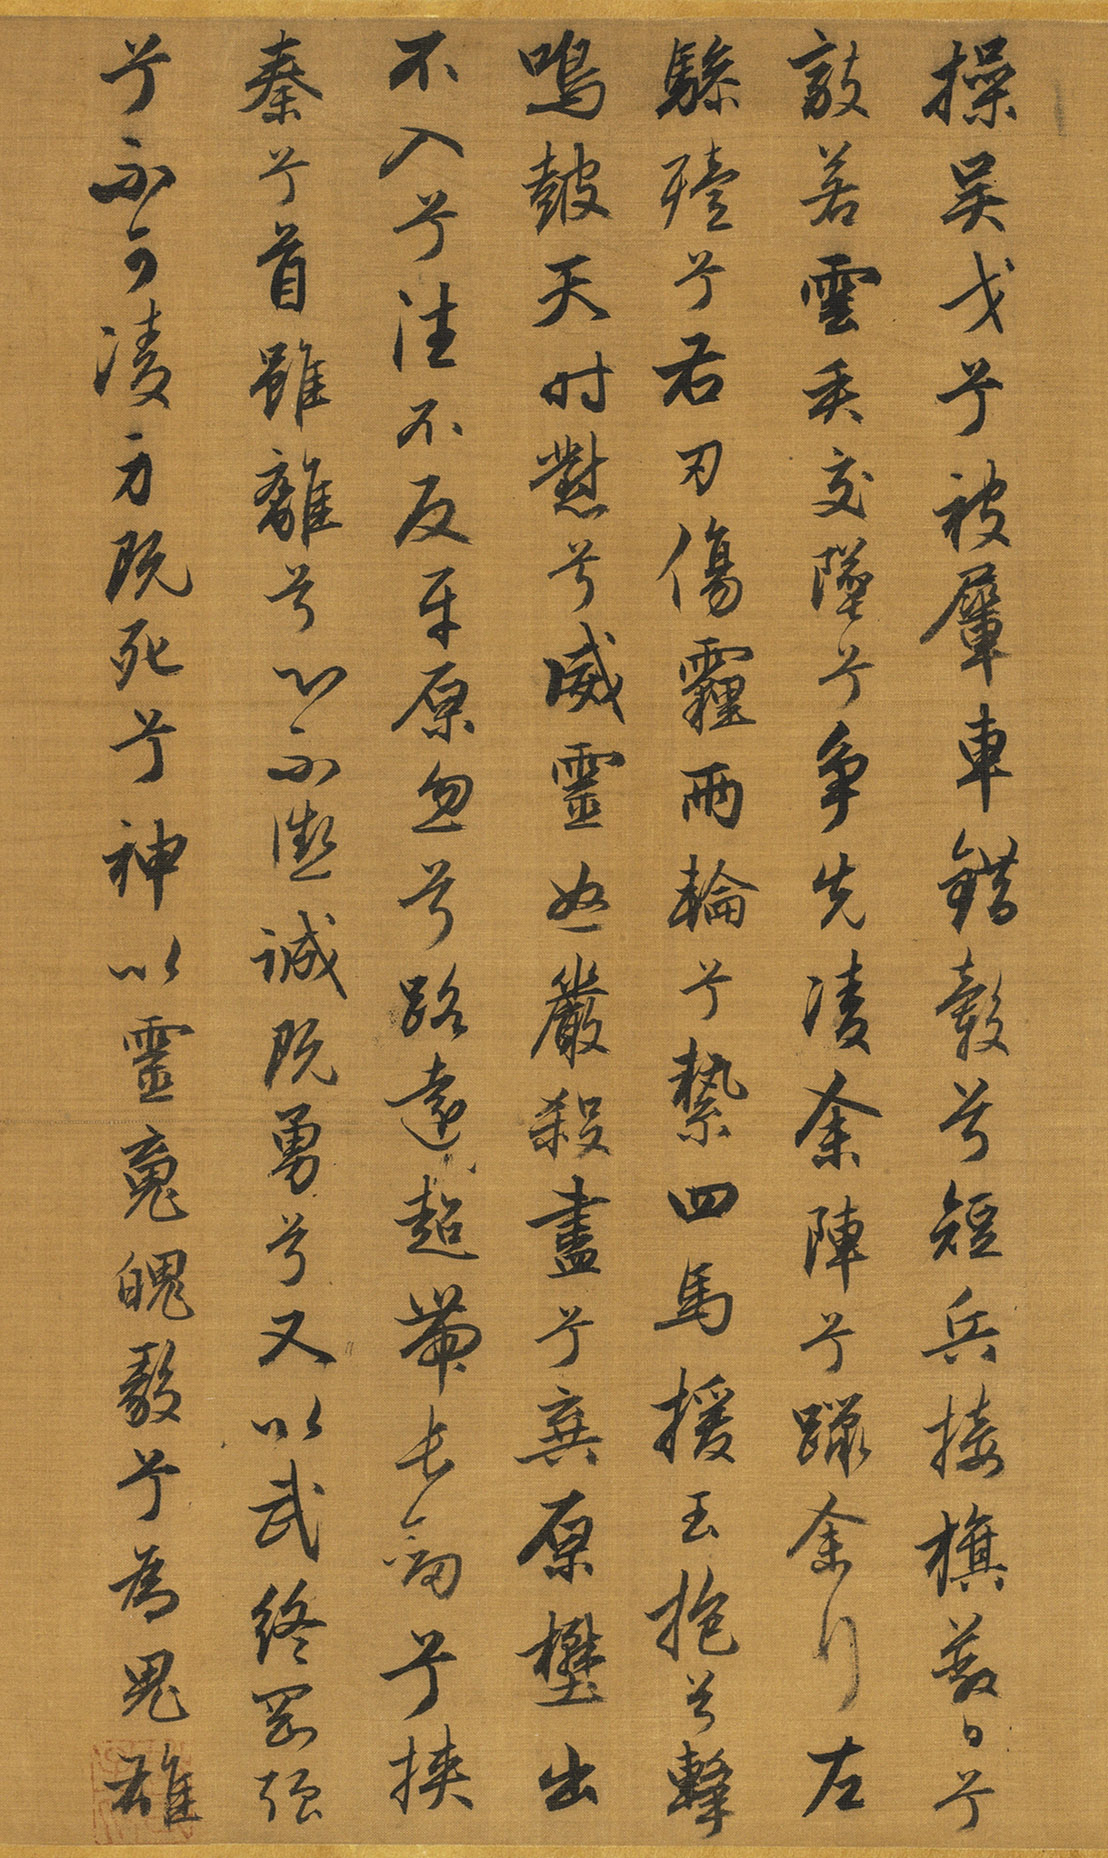 操吳戈兮被犀車錯轂兮短兵接旗蔽日兮
敵若雲矢交墜兮爭先凌余陣兮躐余行左
驂殪兮右刃傷霾兩輪兮縶四馬援玉抱兮擊
鳴鼓天時懟兮威靈怒嚴殺盡兮棄原壄出
不入兮往不反平原忽兮路遠超帶長劍兮挾
秦兮首雖離兮心不懲誠既勇兮又以武終剛强
兮不可凌身既死兮神以靈魂魄毅兮為鬼雄